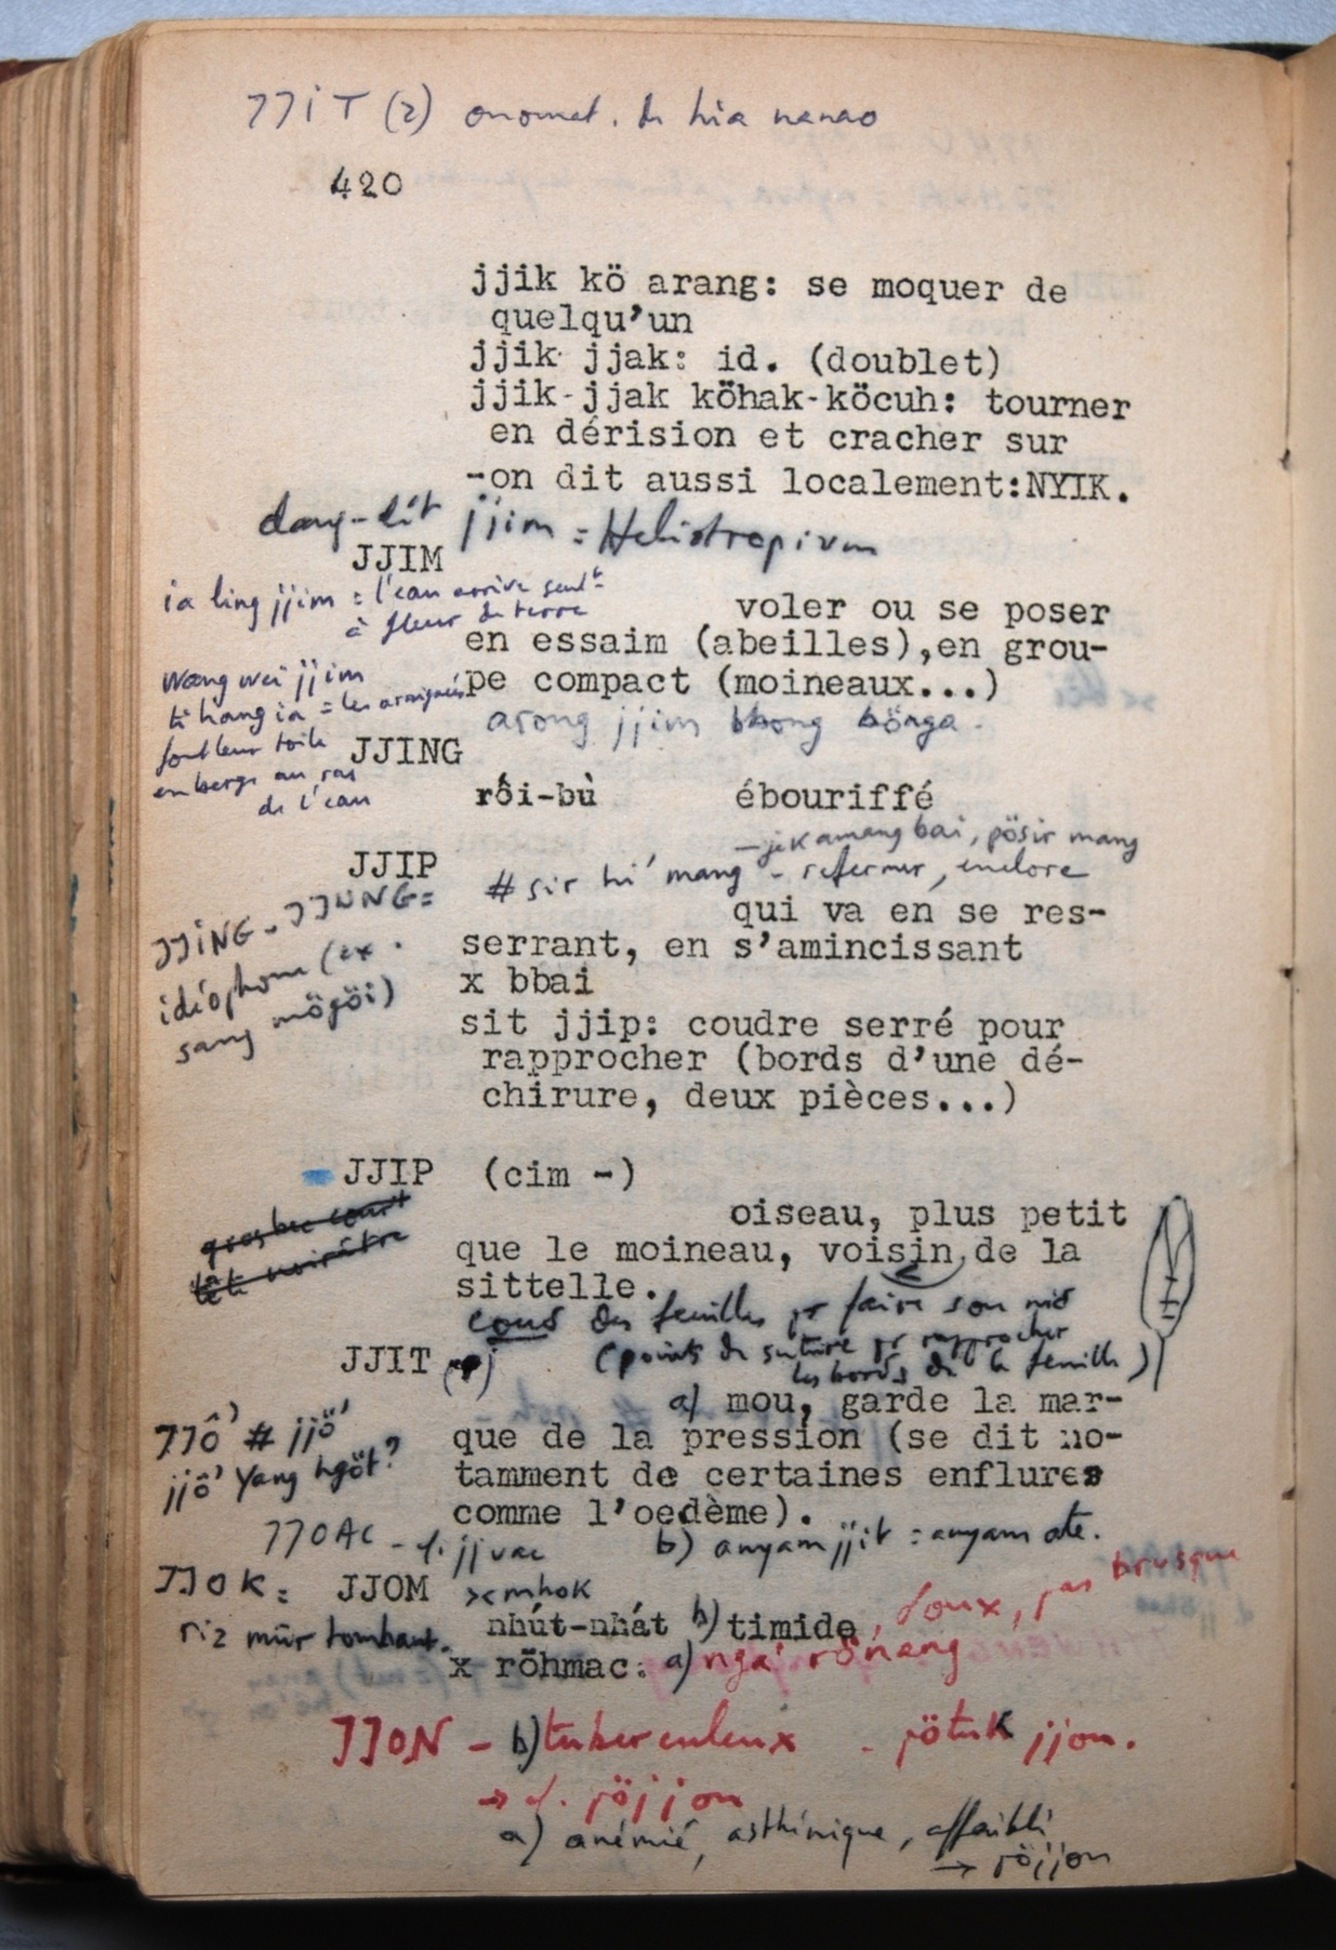 JJIT (2) onomat. de hia nanao
420
jjik kö arang: se moquer de
quelqu'un
jjik jjak: id. (doublet)
jjik-jjak köhak-köcuh: tourner
en dérision et cracher sur
-on dit aussi localement:NYIK.
dang-lit jjim = Heliotropium
JJIM
ia ling jjim = l'eau arrive seult
à fleur de terre
voler ou se poser
en essaim (abeilles),en grou-
wang wai jjim
pe compact (moineaux...)
ti hang ia = les araignées
arong jjim bbong bönga.
font leur toile
JJING
en berge au ras
de l'eau
rối-bù ébouriffé
- jek amang bai, pösir mang
JJIP
# sir hi' mang - refermer, enclore
JJING-JJUNG=
qui va en se res-
serrant, en s'amincissant
idéophone (ex.
x bbai
sang mögöi)
sit jjip: coudre serré pour
rapprocher (bords d'une dé-
chirure, deux pièces...)
JJIP (cim -)
gros bec court
oiseau, plus petit
tête noirâtre
que le moineau, voisin de la
sittelle.
coud des feuilles pr faire son nid
JJIT
(points de suture pr rapprocher
les bords de la feuille)
a) mou, garde la mar-
JJÔ' # jjö'
que de la pression (se dit no-
jjô' Yang hgöt?
tamment de certaines enflures
comme l'oedème).
JJOAC - cf. jjuac
b) anyam jjit = anyam ate.
JJOK = JJOM
>< mhok
riz mûr tombant.
nhút-nhát b) timide, doux, pas brusque
x röhmac: a) nga' rönang
JJON - b) tuberculeux - pötuk jjon.
→ cf. röjjon
a) anémié, asthénique, affaibli
→ röjjon